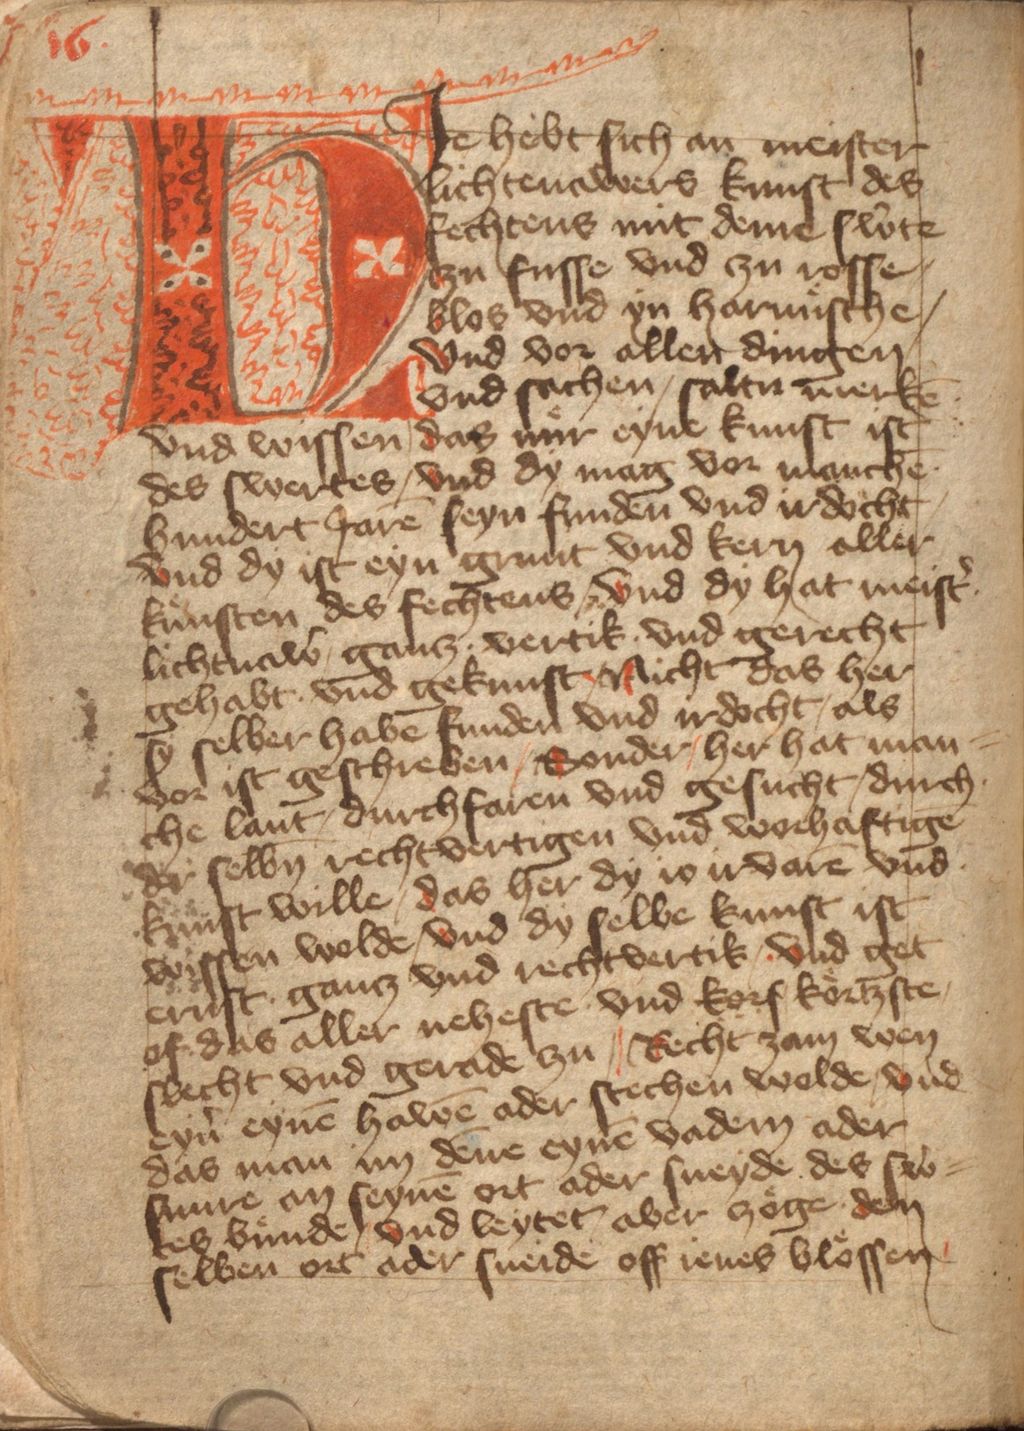 16.
HIe hebt sich an meister
lichtenawers kunst des
fechtens mit deme sw̉te
czu fusse vnd czu rosse /
blos vnd yn harnüsche /
Vnd vor allen dingen
vnd sachen / saltu merkē
vnd wissen / das nür eyne kunst ist
des swertes / vnd dy mag vor manchē
hundert Jarē seyn funden vnd irdocht /
Vnd dy ist eyn grunt vnd kern aller
künsten des fechtens / Vnd dy hat meist̉
lichtnaw̉ / gancz vertik vnd gerecht
gehabt vnd gekunst / Nicht das her
sy selber habe funden vnd irdocht / als
vor ist geschreben / Sonder / her hat man=
che lant / durchfaren vnd gesucht / durch
dr̉ selbñ rechtvertigen vnd worhaftigē
kunst wille / das her dy io irvarē vnd
wissen welde / Vnd dy selbe kunst ist
ernst gancz vnd rechtvertik / Vnd get
of das aller neheste vnd körtzste /
slecht vnd gerade czu / Recht zam wen
eyn̉ eynē hawē ader stechen welde / vnd
das man im dēne eynē vadem ader
snure an seynē ort ader sneyde des sw̉=
tes bünde / vnd leytet aber czöge den
selben ort ader sneide off ienes blössen